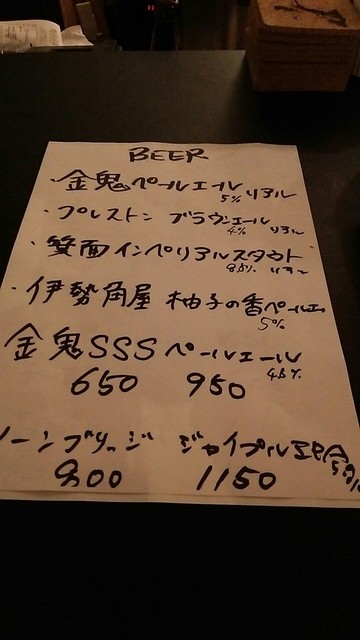 BEER
・金鬼ペールエール 5% リアル
・プレストン ブラウンエール 4% リアル
・箕面インペリアルスタウト 8.5% リアル
・伊勢角屋 柚子の香ペールエ 5%
金鬼SSSペールエール 4.8%
650 950
ーンブリッジ ジャイプルIPA
900 1150